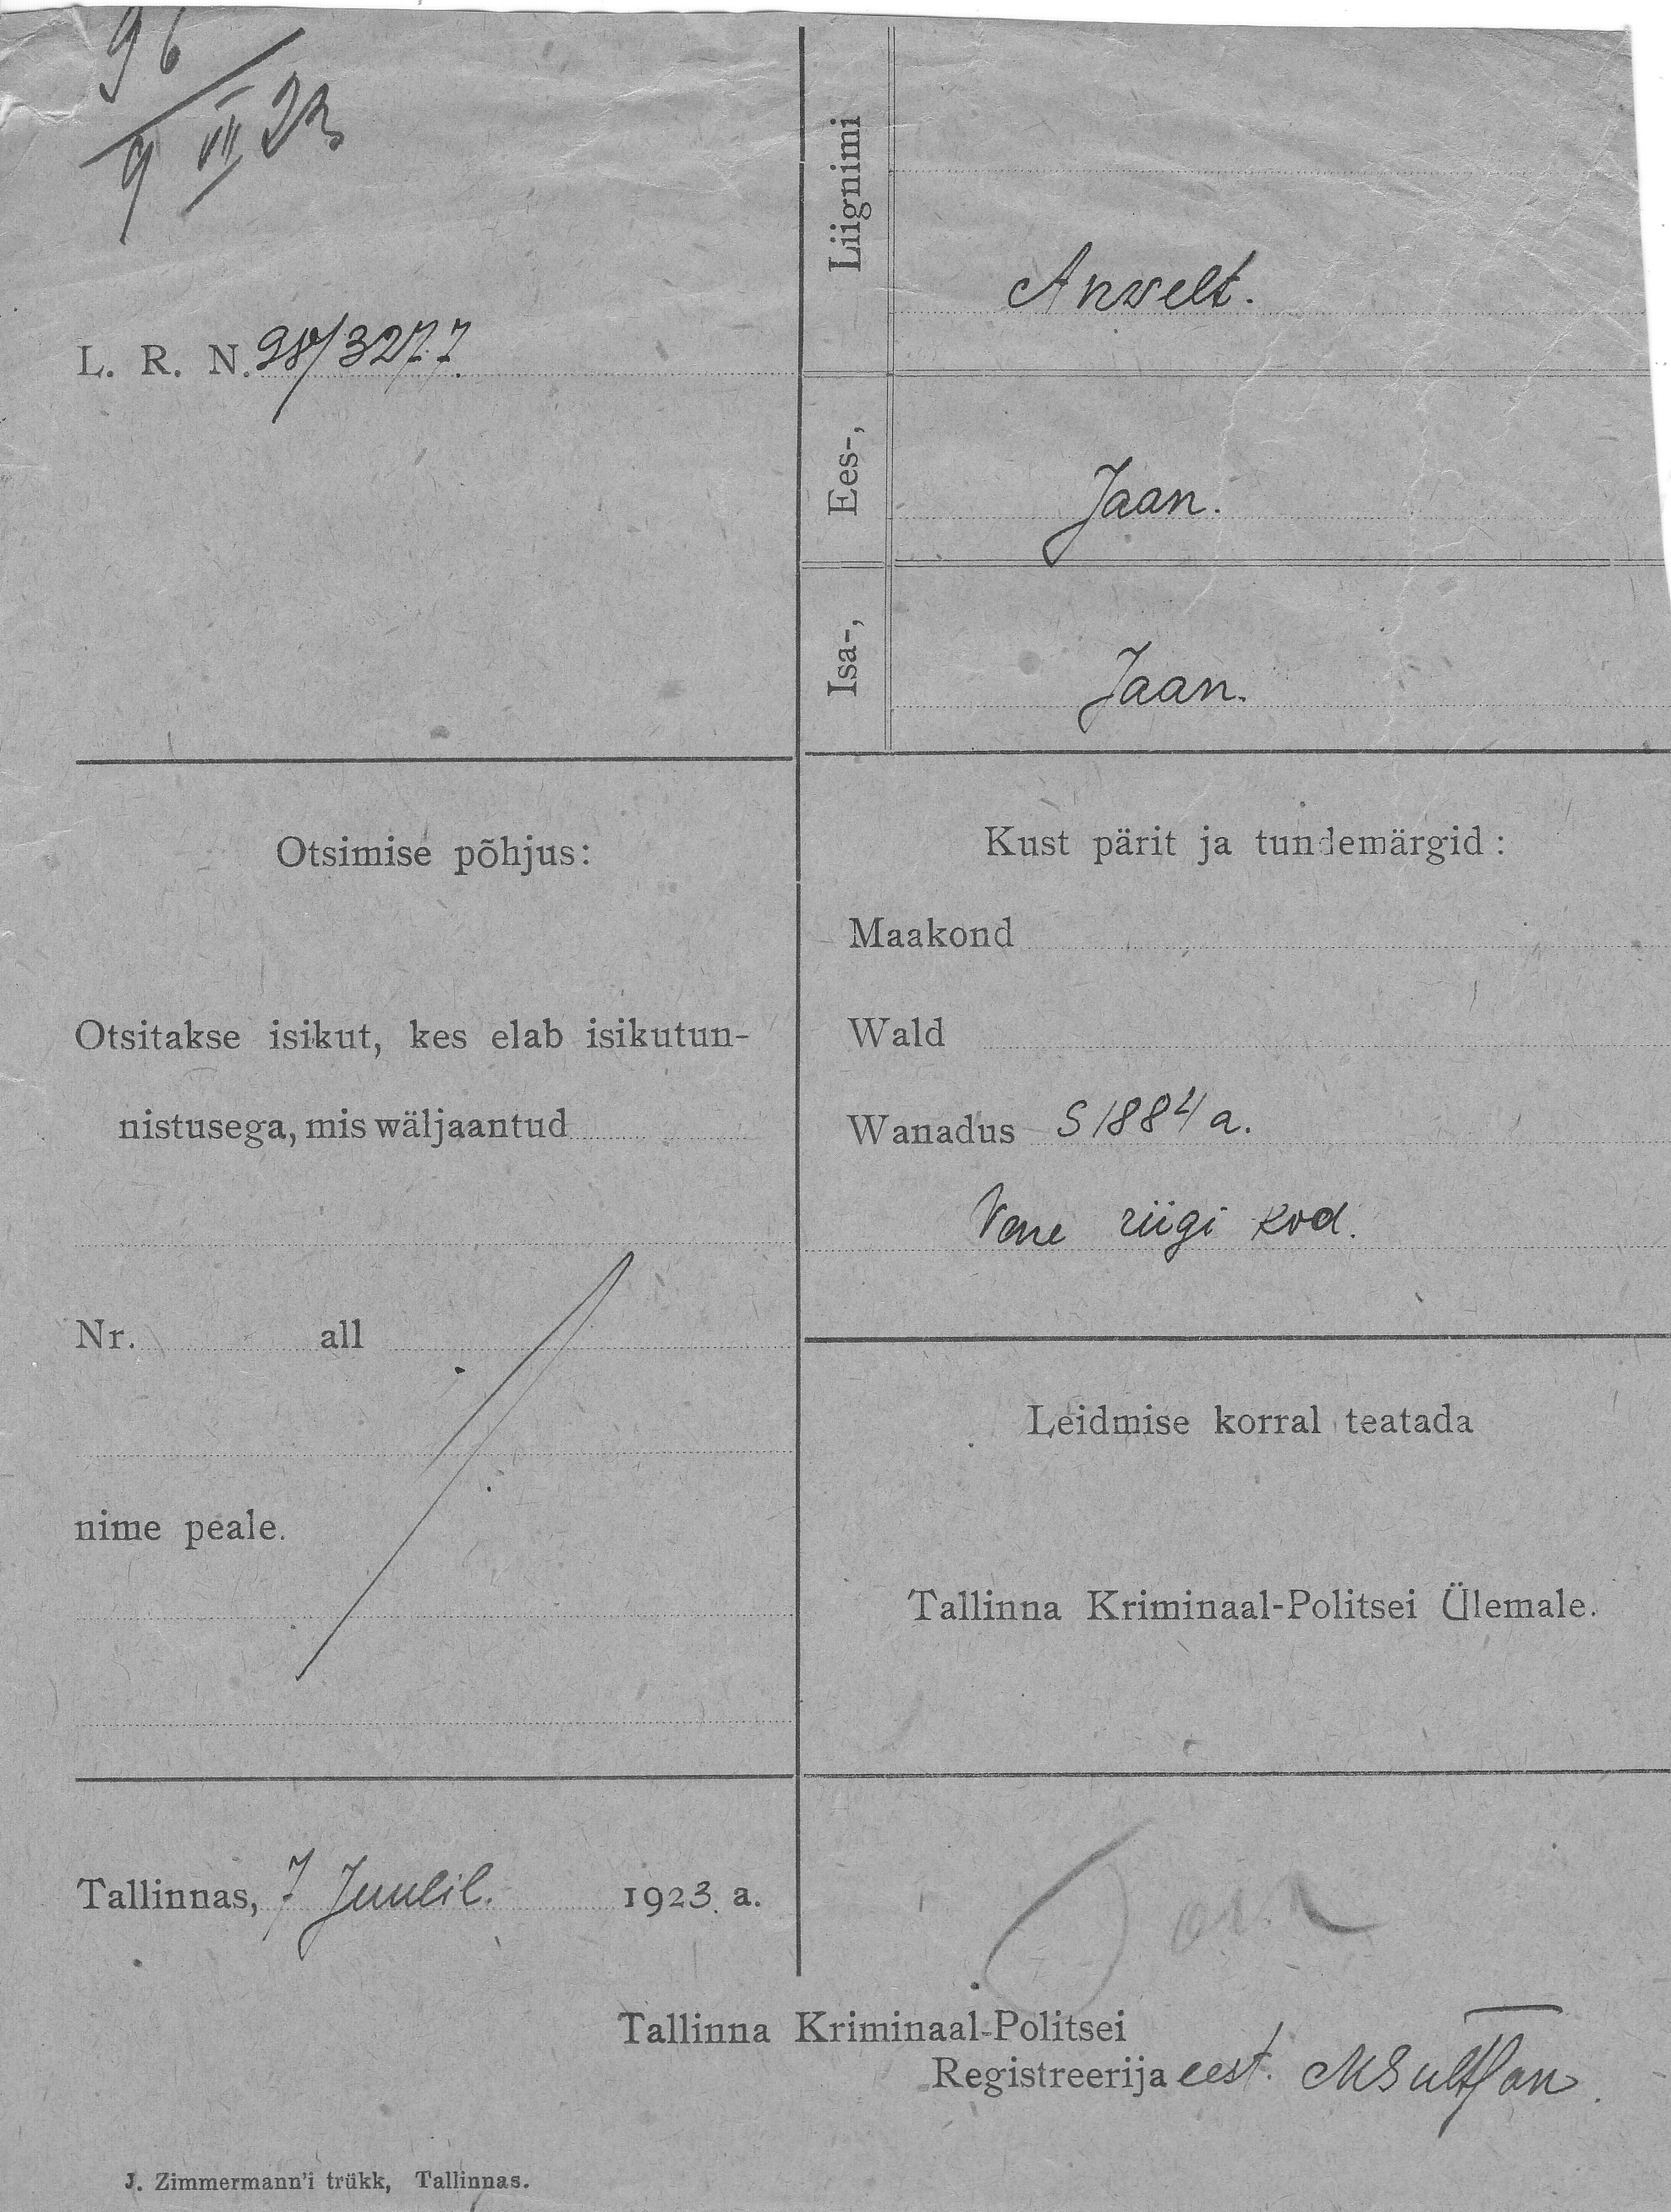 96
9 VII 23
L. R. N. 98/3277.
Liignimi
Anvelt.
Ees-,
Jaan.
Isa-,
Jaan.
Otsimise põhjus:
Otsitakse isikut, kes elab isikutun-
nistusega, mis wäljaantud
Nr. all
nime peale.
Kust pärit ja tundemärgid:
Maakond
Wald
Wanadus S 1884 a.
Vene riigi kod.
Leidmise korral teatada
Tallinna Kriminaal-Politsei Ülemale.
Tallinnas, 7 Juulil. 1923. a.
Tallinna Kriminaal-Politsei
Registreerija eest.
J. Zimmermann'i trükk, Tallinnas.